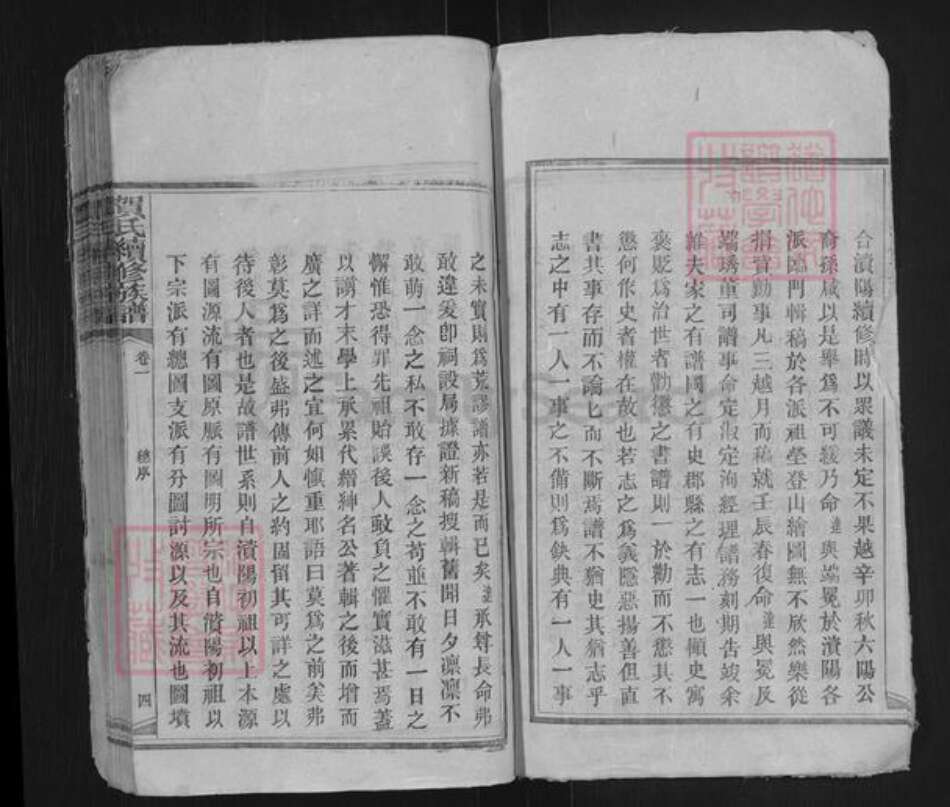 合濆陽續修時以眾議未定不果越辛卯秋六陽公
裔孫咸以是舉為不可緩乃命達與端冕於濆陽各
派臨門輯稿於各派祖塋登山繪圖無不欣然樂從
捐貲勷事凡三越月而稿就壬辰春復命達與冕及
端琇董司譜事命定淑定洵經理譜務刻期告竣余
維夫家之有譜國之有史郡縣之有志一也顧史寓
褒貶為治世者勸懲之書譜則一於勸而不懲其不
懲何作史者權在故也若志之為義隱惡揚善但直
書其事存而不論匕而不斷焉譜不猶史其猶志乎
志之中有一人一事之不備則為缺典有一人一事
之未實則為荒謬譜亦若是而已矣達承尊長命弗
敢違爰卽祠設局據證新稿搜輯舊聞日夕凛凛不
敢萌一念之私不敢存一念之苟並不敢有一日之
懈惟恐得罪先祖貽誤後人致負之懼實滋甚焉蓋
以謭才末學上承累代縉紳名公著輯之後而增而
廣之詳而述之宜何如慎重耶語曰莫為之前矣弗
彰莫為之後盛弗傳前人之約固留其可詳之處以
待後人者也是故譜世系則自濆陽初祖以上本源
有圖源流有圖原脈有圖明所宗也自濆陽初祖以
下宗派有總圖支派有分圖討源以及其流也圖墳
賀氏續修族譜
卷一
總序
四